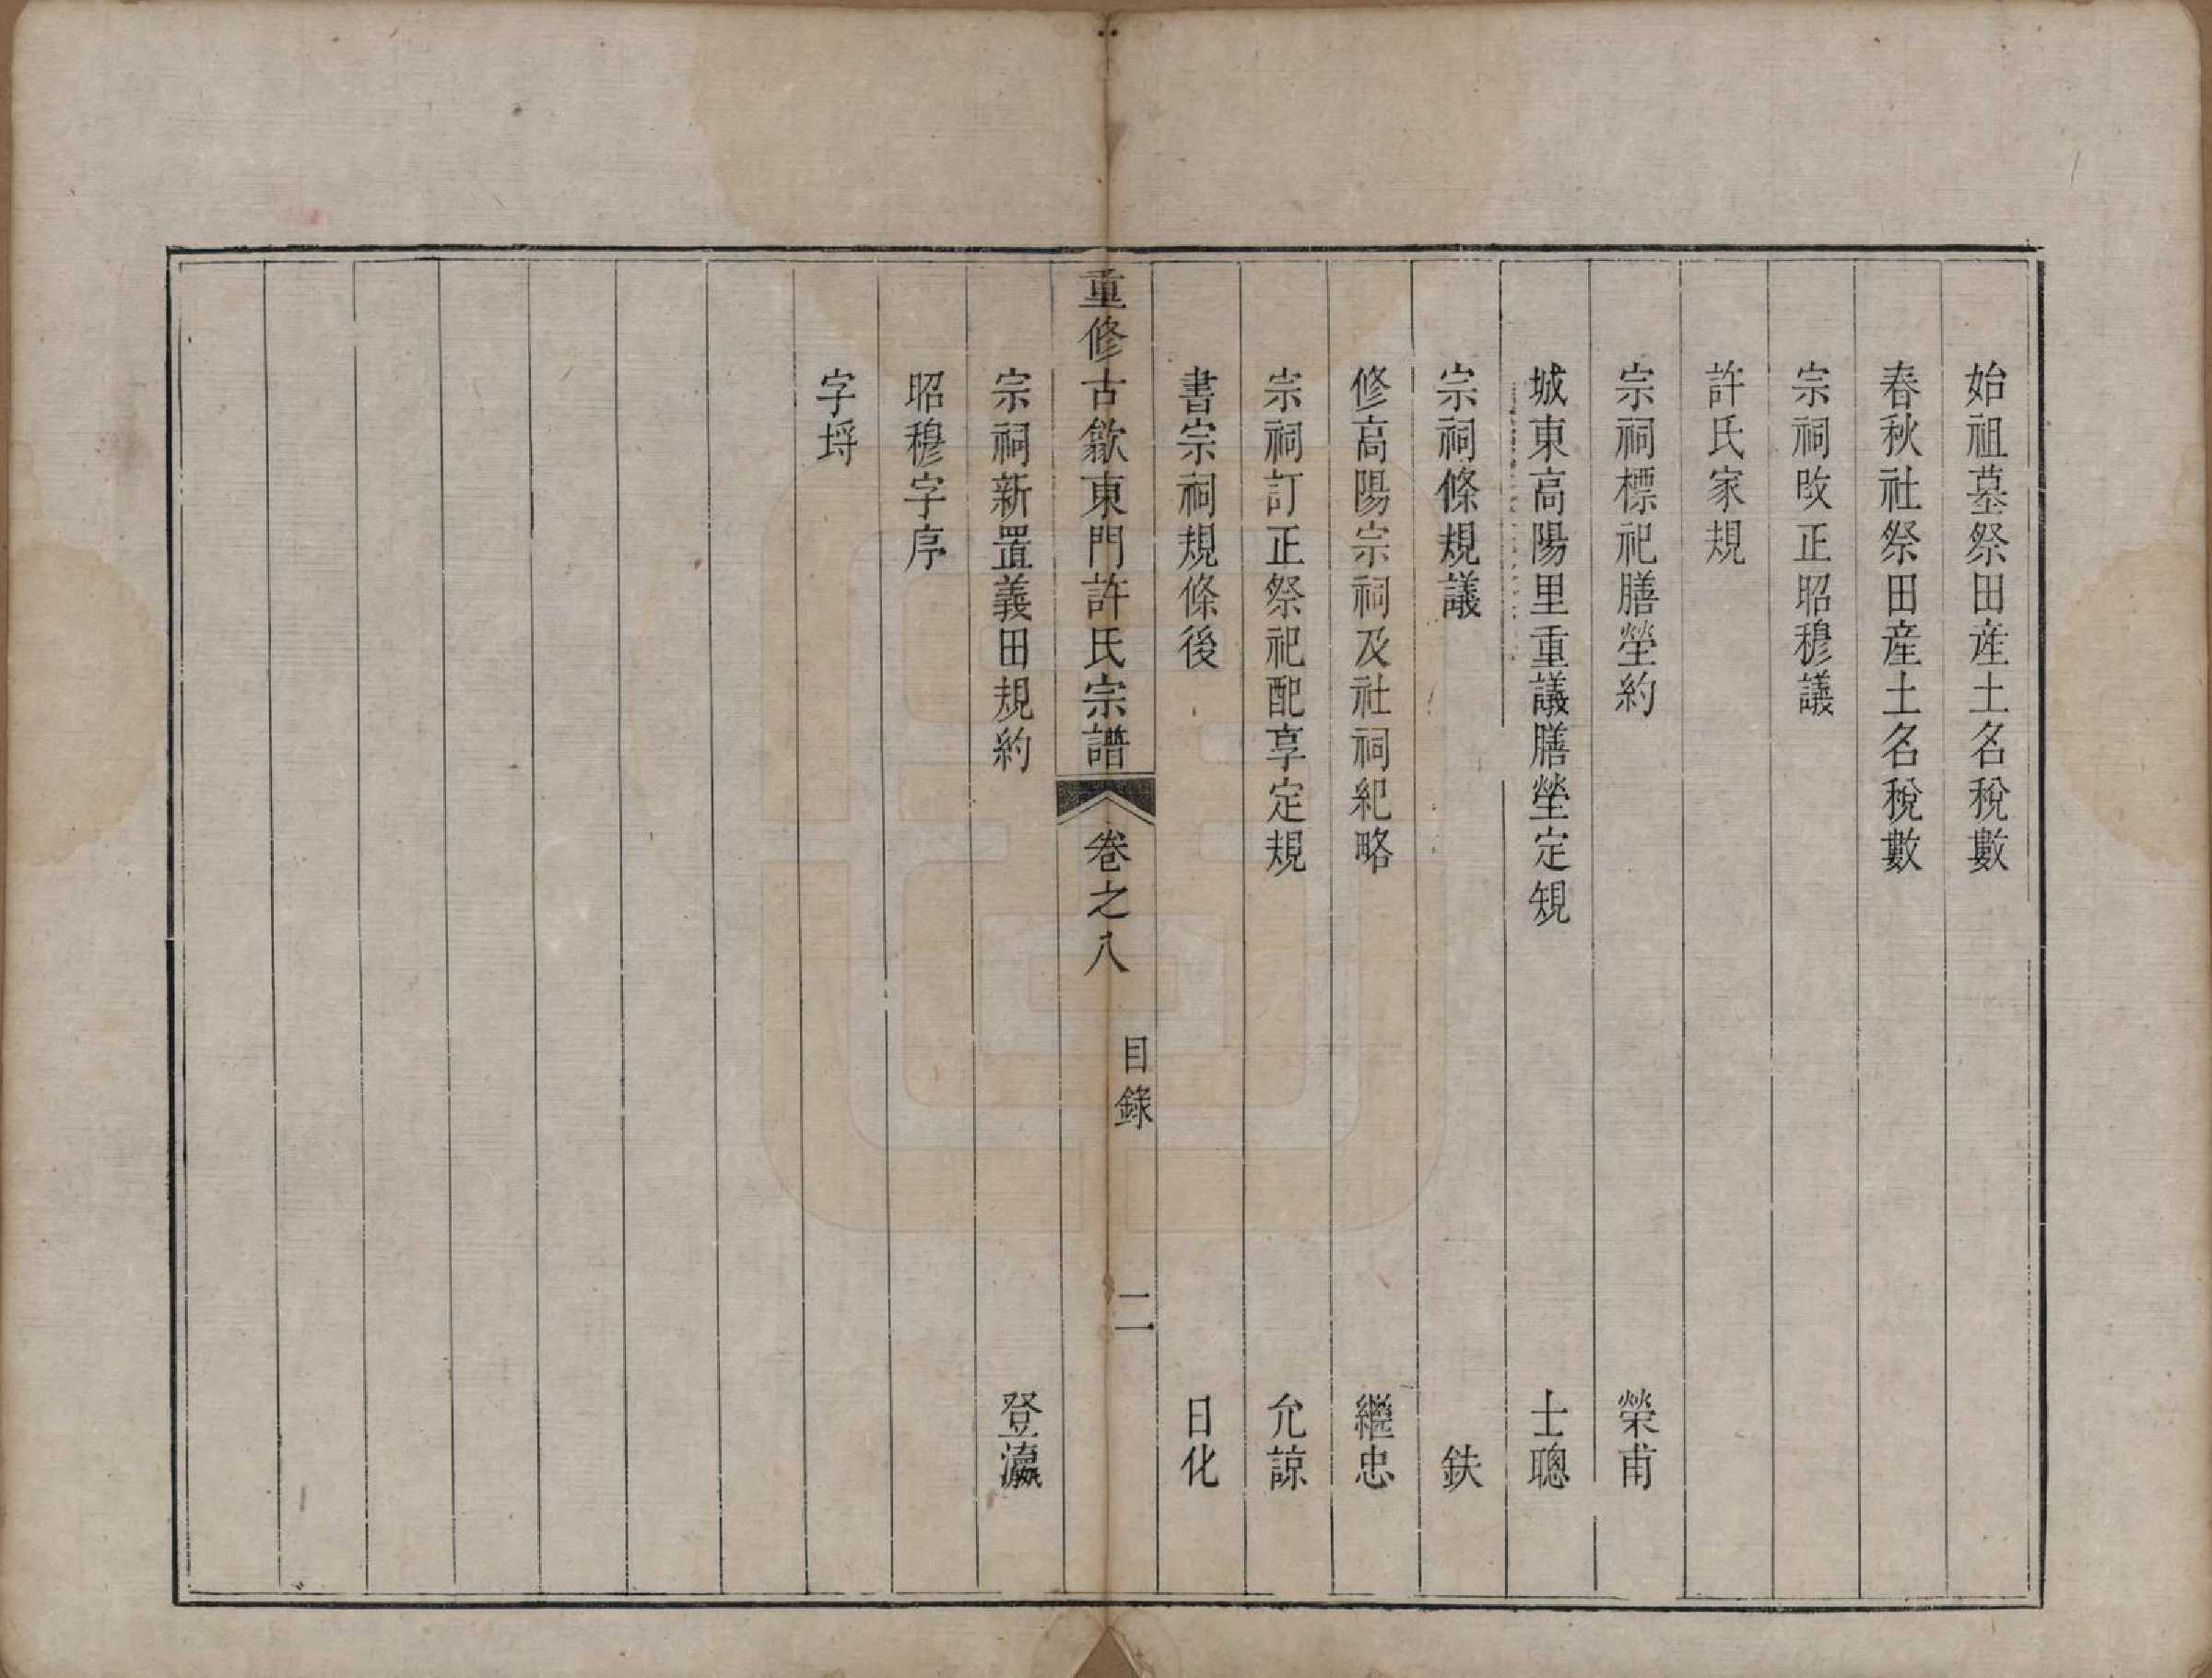 始祖墓祭田産土名稅數
春秋社祭田産土名稅數
宗祠改正昭穆議
許氏家規
宗祠標祀膳塋約 榮甫
城東高陽里重議膳塋定規 士聰
宗祠條規議 鈇
修高陽宗祠及社祠紀略 繼忠
宗祠訂正祭祀配享定規 允諒
書宗祠規條後 日化
重修古歙東門許氏宗譜 卷之八 目錄 二
宗祠新置義田規約 登瀛
昭穆字序
字埓